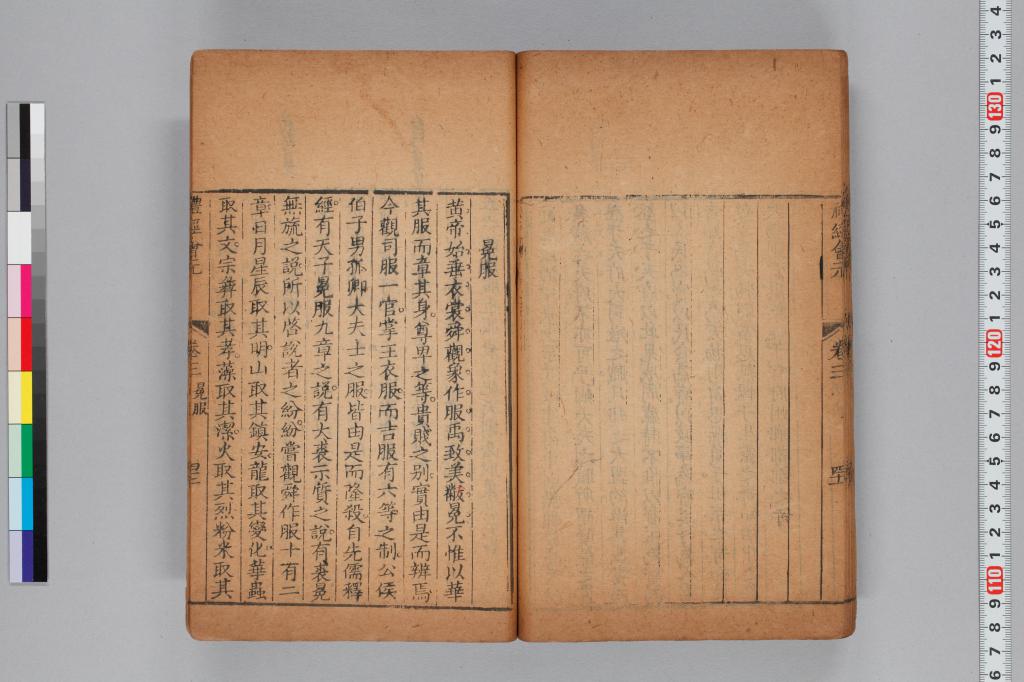 禮經會元
卷三
冕服
黃帝始垂衣裳舜觀象作服禹致美黻冕不惟以華
其服而章其身尊卑之等貴賤之别實由是而辨焉
今觀司服一官掌王衣服而吉服有六等之制公侯
伯子男孤卿大夫士之服皆由是而隆殺自先儒釋
經有天子冕服九章之說有大裘示質之說有裘冕
無旒之說所以啓說者之紛紛嘗觀舜作服十有二
章日月星辰取其明山取其鎮安龍取其變化華蟲
取其文宗彝取其孝藻取其潔火取其烈粉米取其
禮經會元
卷三
冕服